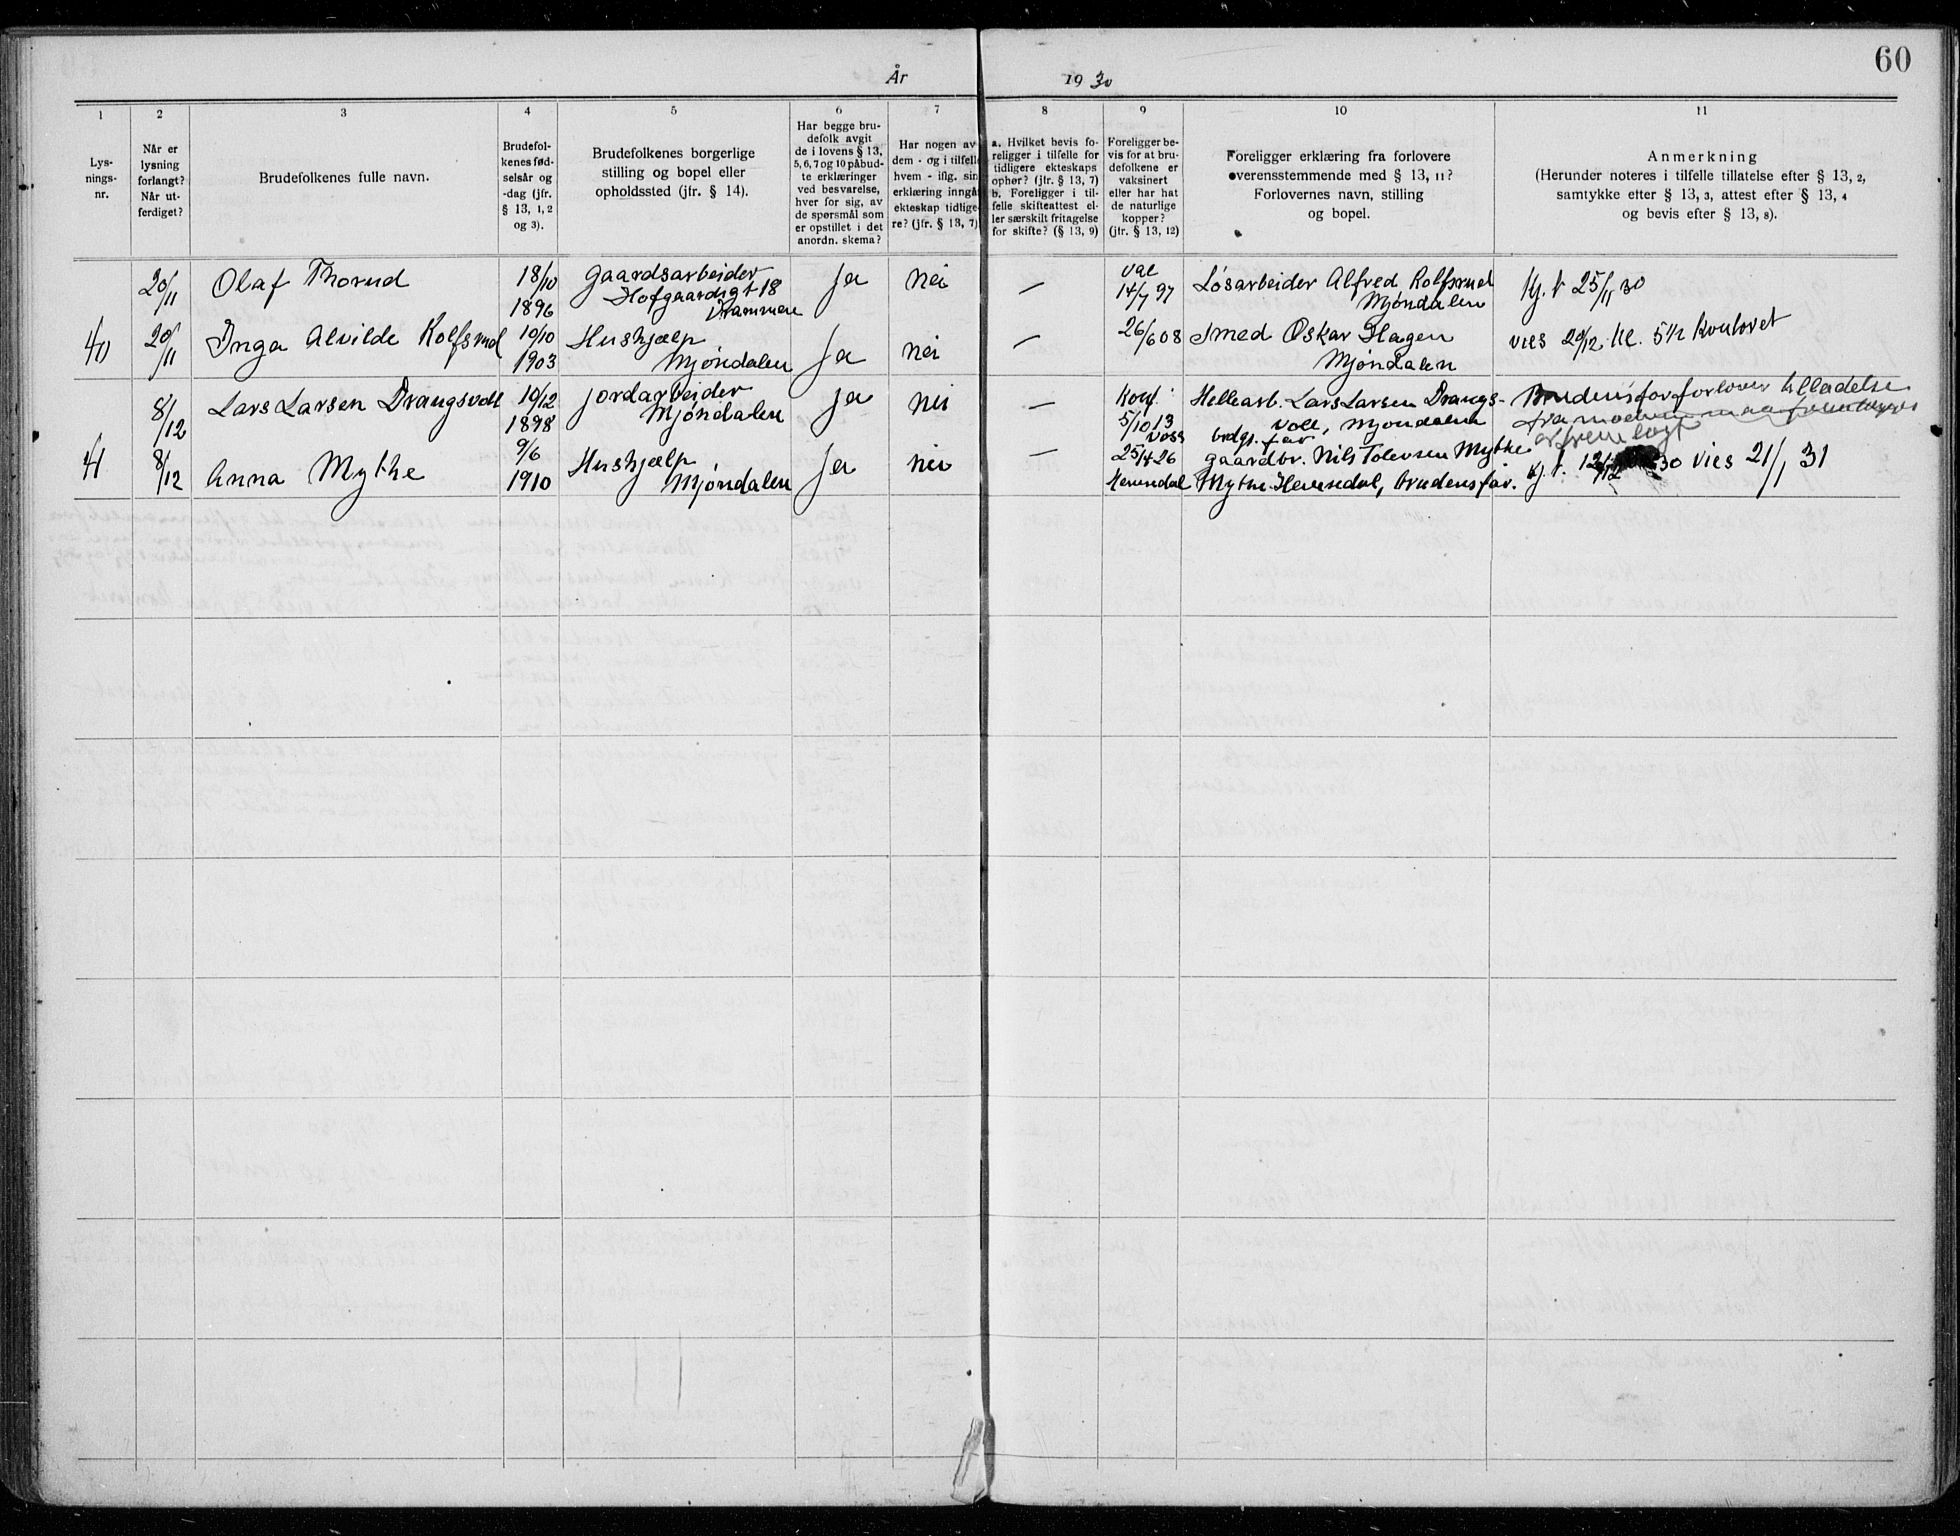 60
År 1930
1 2 3 4 5 6 7 8 9 10 11
Lys-
nings-
nr.
Når er
lysning
forlangt?
Når ut-
ferdiget?
Brudefolkenes fulle navn.
Brudefol-
kenes fød-
selsår og
-dag (jfr.
§ 13, 1, 2
og 3).
Brudefolkenes borgerlige
stilling og bopel eller
opholdssted (jfr. § 14).
Har begge bru-
defolk avgit
de i lovens § 13,
5, 6, 7 og 10 påbud-
te erklæringer
ved besvarelse,
hver for sig, av
de spørsmål som
er opstillet i det
anordn. skema?
Har nogen av
dem - og i tilfelle
hvem - iflg. sin
erklæring inngåt
ekteskap tidlige-
re? (jfr. § 13, 7)
a. Hvilket bevis fo-
religger i tilfelle for
tidligere ekteskaps
ophør? (jfr. § 13, 7)
b. Foreligger i til-
felle skifteattest el-
ler særskilt fritagelse
for skifte? (§ 13, 9)
Foreligger be-
vis for at bru-
defolkene er
vaksinert
eller har hat
de naturlige
kopper?
(jfr. § 13, 12)
Foreligger erklæring fra forlovere
overensstemmende med § 13, 11?
Forlovernes navn, stilling
og bopel.
Anmerkning
(Herunder noteres i tilfelle tillatelse efter § 13, 2,
samtykke etter § 13, 3, attest efter § 13, 4
og bevis efter § 13, 8).
20/11 Olaf Thorud 18/10 1896
Gaardsarbeider
Hofgaardsgt 18
Drammen
Ja nei —
vac
14/7 97
Løsarbeider Alfred Rolfsrud
Mjøndalen
Kj. t 25/11 30
40 20/11 Inga Alvilde Rolfsrud 10/10 1903
Hushjælp
Mjøndalen
Ja nei —
26/6 08
Smed Oskar Hagen
Mjøndalen
vies 20/12 kl. 5 1/2
8/12 Lars Larsen Drangsvoll 10/12 1898
Jordarbeider
Mjøndalen
Ja nei —
Konf.
5/10 13
Voss
Hellearb. Lars Larsen Drangs-
voll, Mjøndalen
brdgs. far
Brudens far forlover tilladelse
fra
41 8/12 Anna Mythe 9/6 1910
Hushjælp
Mjøndalen
Ja nei —
25/4 26
Hemsedal
Gaardbr. Nils Tolevsen Mythe
Mythe Hemsedal, brudens far.
Kj. t. 12/12 30 vies 21/1 31